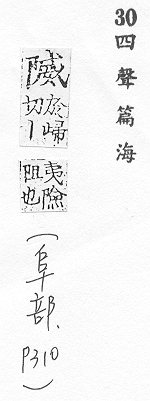 30 四聲篇海
隇
於歸
切丨
夷險
阻也
(阜部、P310)